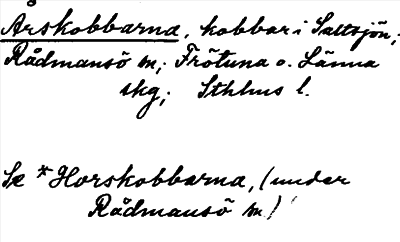 Årskobbarna, kobbar i Saltsjön;
Rådmansö sn; Frötuna o. Länna
skg; Sthlms l.
Se *Horskobbarna, (under
Rådmansö sn)